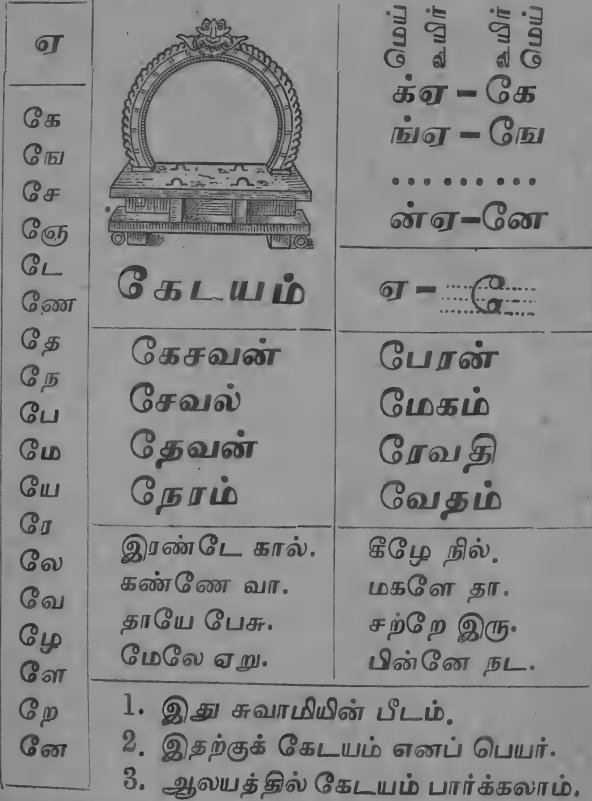 ஏ
கே
ஙே
சே
ஞே
டே
ணே
தே
நே
பே
மே
யே
ரே
லே
வே
ழே
ளே
றே
னே
கேடயம்
மெய் உயிர் உயிர் மெய்
க்ஏ – கே
ங்ஏ – ஙே
.........
ன்ஏ–னே
ஏ – ே
கேசவன்
சேவல்
தேவன்
நேரம்
பேரன்
மேகம்
ரேவதி
வேதம்
இரண்டே கால்.
கண்ணே வா.
தாயே பேசு.
மேலே ஏறு.
கீழே நில்.
மகளே தா.
சற்றே இரு.
பின்னே நட.
1. இது சுவாமியின் பீடம்.
2. இதற்குக் கேடயம் எனப் பெயர்.
3. ஆலயத்தில் கேடயம் பார்க்கலாம்.